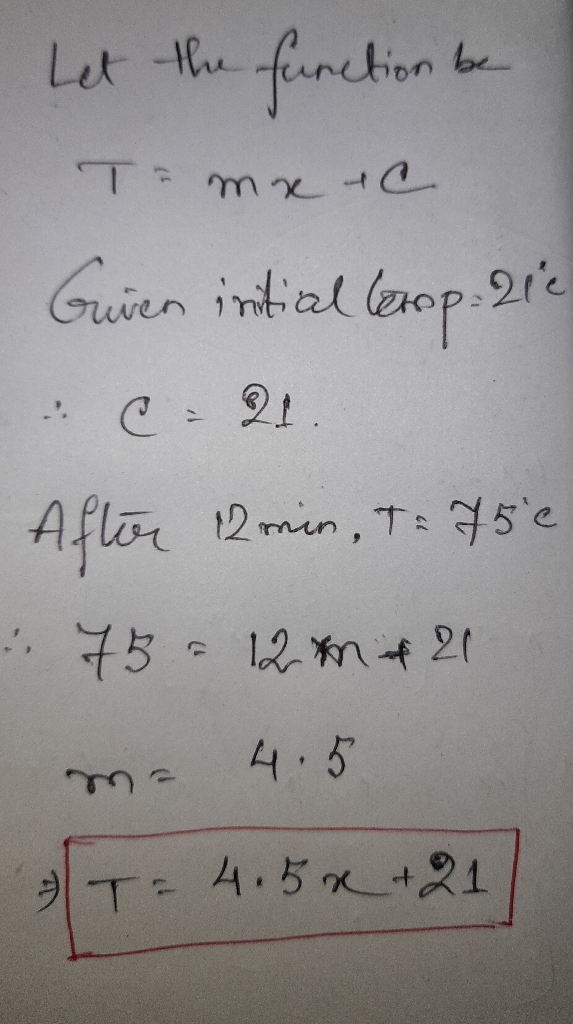 Let the function be
T = mx + C
Given initial temp = 21°C
∴ C = 21.
After 12 min, T = 75°C
∴ 75 = 12 m + 21
m = 4.5
⇒ T = 4.5x + 21